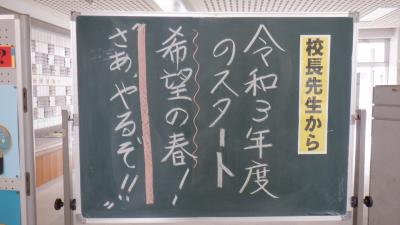 校長先生から
令和3年度
のスタート
希望の春!
さあ、やるぞ!!
?